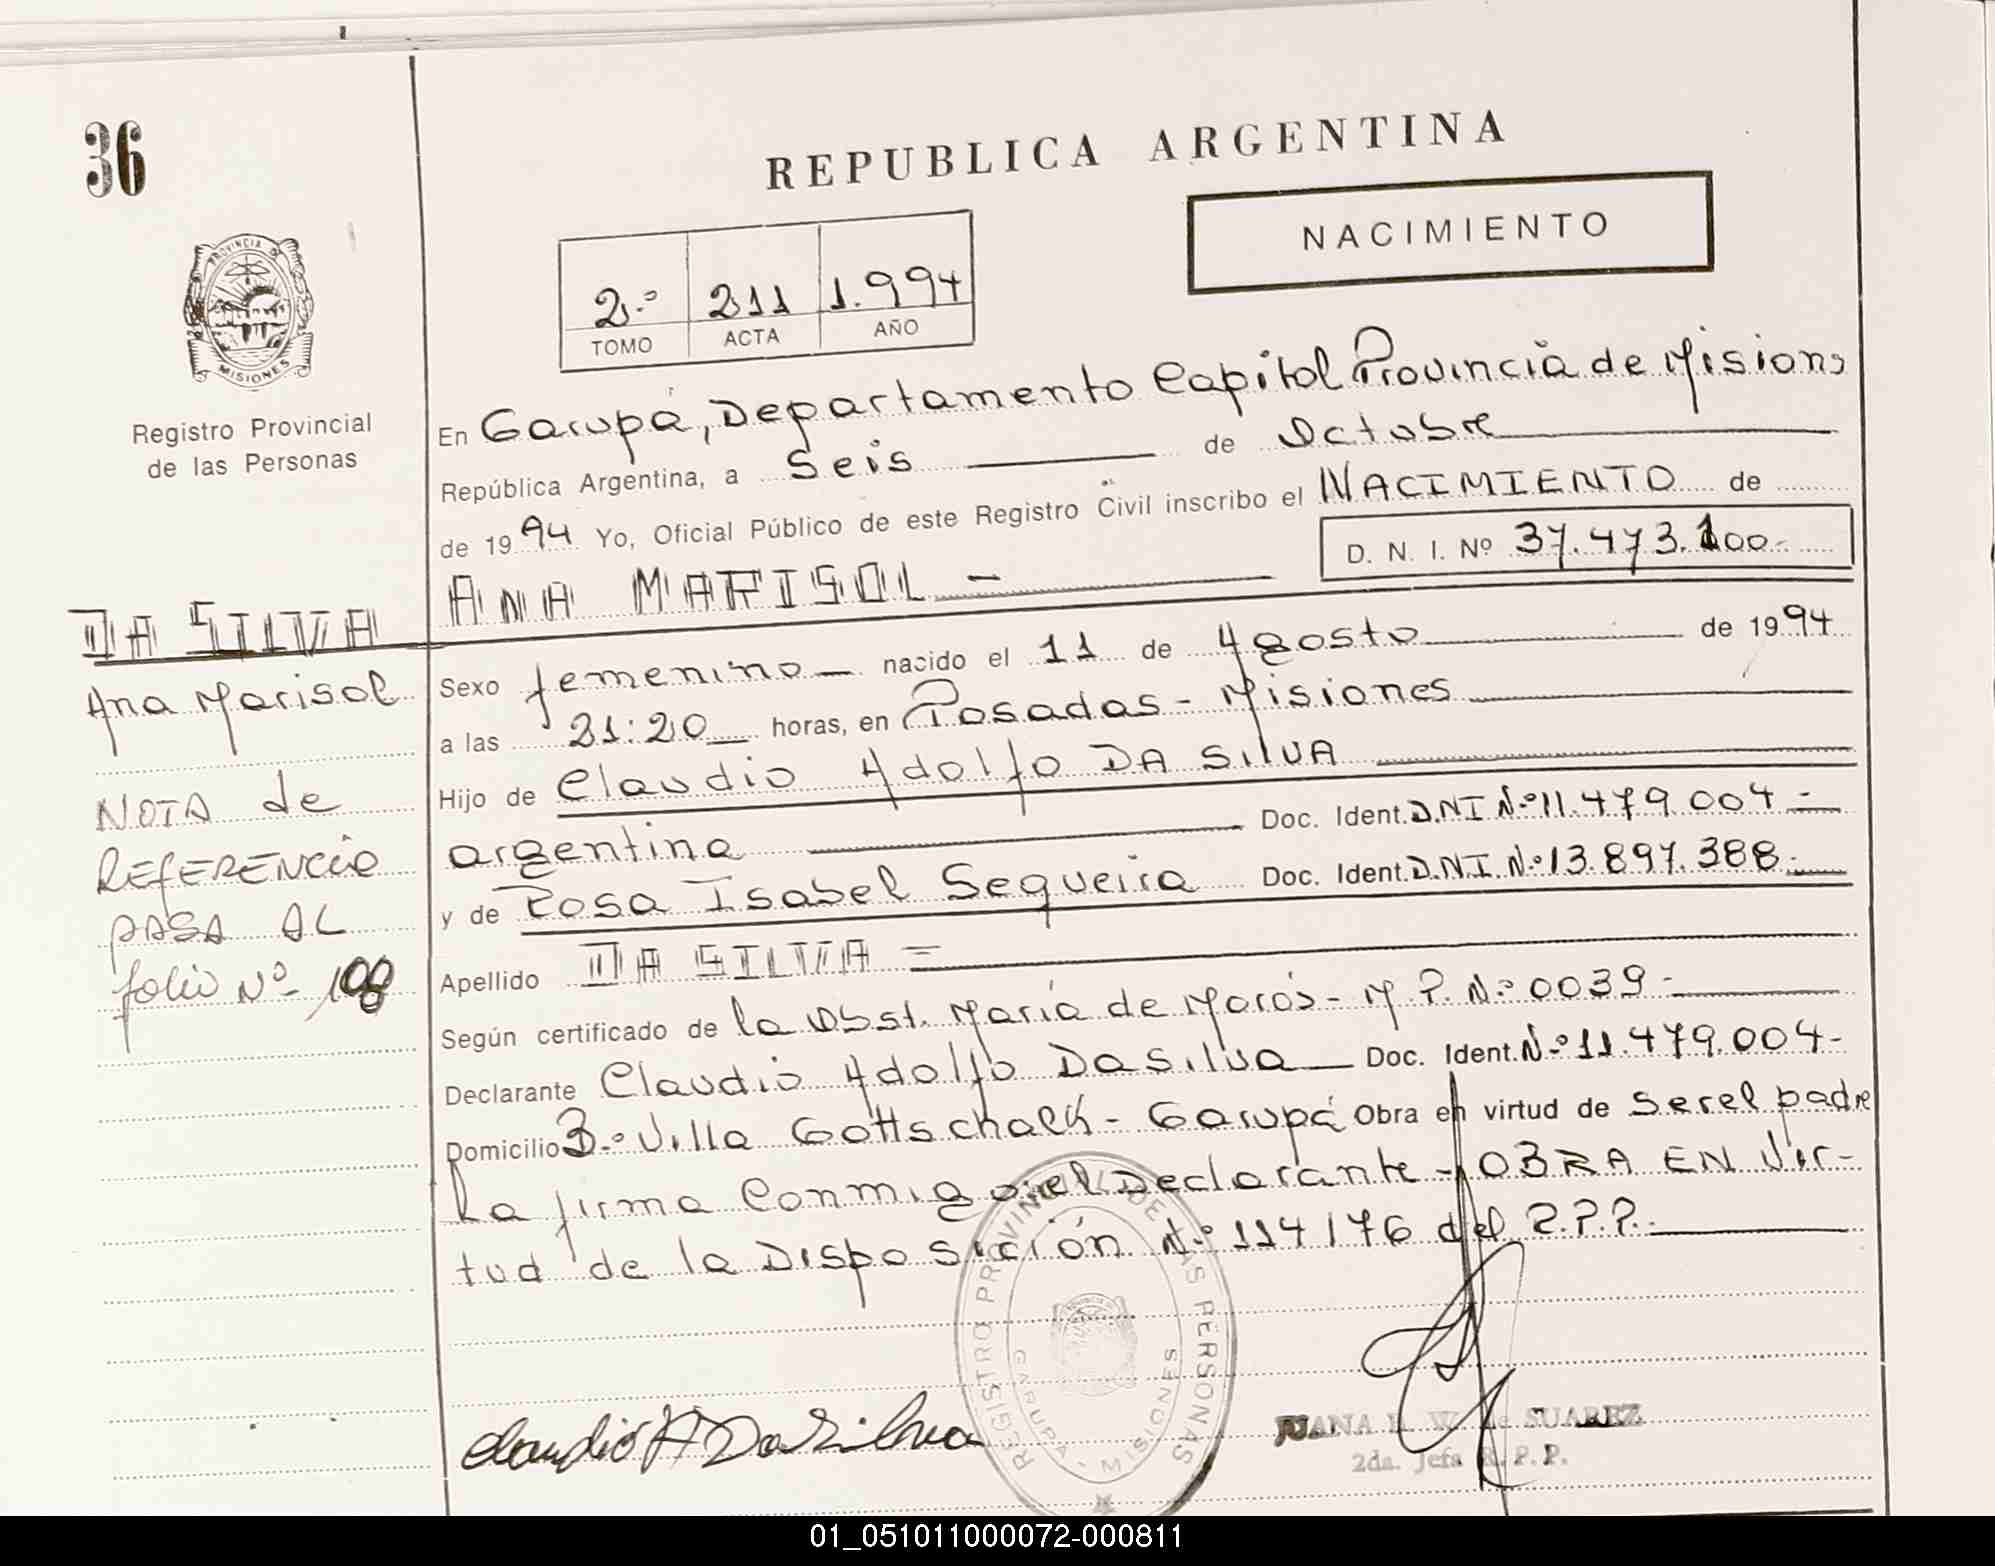 36
REPUBLICA ARGENTINA
NACIMIENTO
2.° 211 1.994
TOMO ACTA AÑO
PROVINCIA DE
MISIONES
Registro Provincial
de las Personas
En Garupá, Departamento Capital Provincia de Misiones
República Argentina, a Seis de Octubre
de 1994 Yo, Oficial Público de este Registro Civil inscribo el NACIMIENTO de
D. N. I. Nº 37.473.100.-
DA SILVA ANA MARISOL -
Ana Marisol
Sexo femenino nacido el 11 de Agosto de 1994
a las 21:20 horas, en Posadas - Misiones
Hijo de Claudio Adolfo DA SILVA
argentina Doc. Ident. D.N.I N.° 11.479.004.-
y de Rosa Isabel Sequeira Doc. Ident. D.N.I. N.° 13.897.388.-
Apellido DA SILVA =
NOTA de
REFERENCIA
PASA AL
folio Nº 108
Según certificado de la Obst. María de Morós - M P. N.° 0039 -
Declarante Claudio Adolfo Da Silva Doc. Ident. N.° 11.479.004-
Domicilio B.° Villa Gottschalk - Garupá Obra en virtud de ser el padre
La firma Conmigo el Declarante - OBRA EN Vir-
tud de la Disposición N.° 114/76 del R.P.P.-
REGISTRO PROVINCIAL DE LAS PERSONAS
GARUPA - MISIONES
Claudio A Da Silva
JUANA W. de SUAREZ
2da. Jefa R. P. P.
01_051011000072-000811